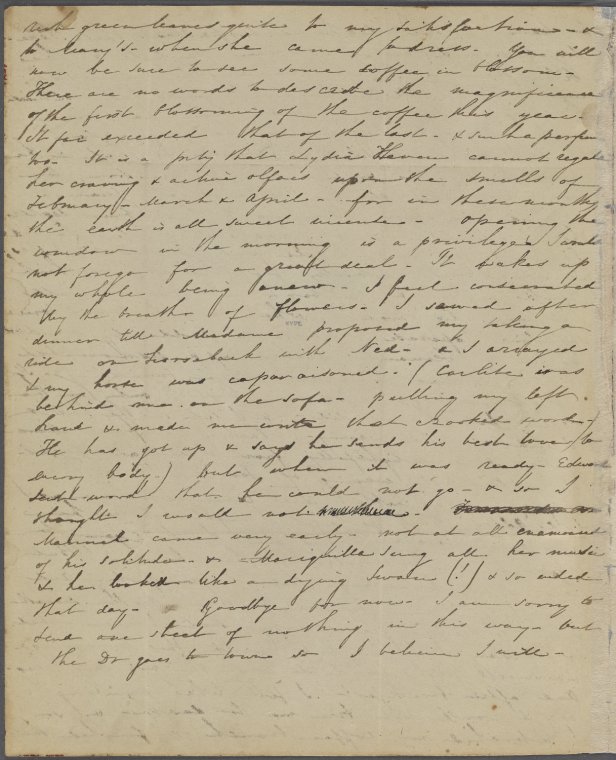 with green leaves quite to my satisfaction - &
to Mary's - when she came to dress. You will
now be sure to see some coffee in blossom -
There are no words to describe the magnificence
of the first blossoming of the coffee this year.
It far exceeded that of the last - & such a perfume
too - It is a pity that Lydia Haven cannot regale
her craving & active olfacs upon the smells of
February - March & April - for in these months
the earth is all sweet incense - opening the
window in the morning is a privilege I would
not forego for a great deal - It wakes up
my whole being anew - I feel consecrated
by the breath of flowers - I sewed after
dinner till Madame proposed my taking a
ride on horseback with Ned - & I arrayed
& my horse was caparisoned. (Carlito was
behind me on the sofa - pulling my left
hand & made me write that crooked word -
He has got up & says he sends his best love to
every body.) but when it was ready - Edward
sent word that he could not go & so I
thought I would not -
Manuel came very early - not at all
of his solitude - & Mariquilla sung all her music
& he looked like a dying Swain (!) & so ended
that day - Goodbye for now - I am sorry to
send one sheet of nothing in this way - but
the Dr goes to town so I believe I will -